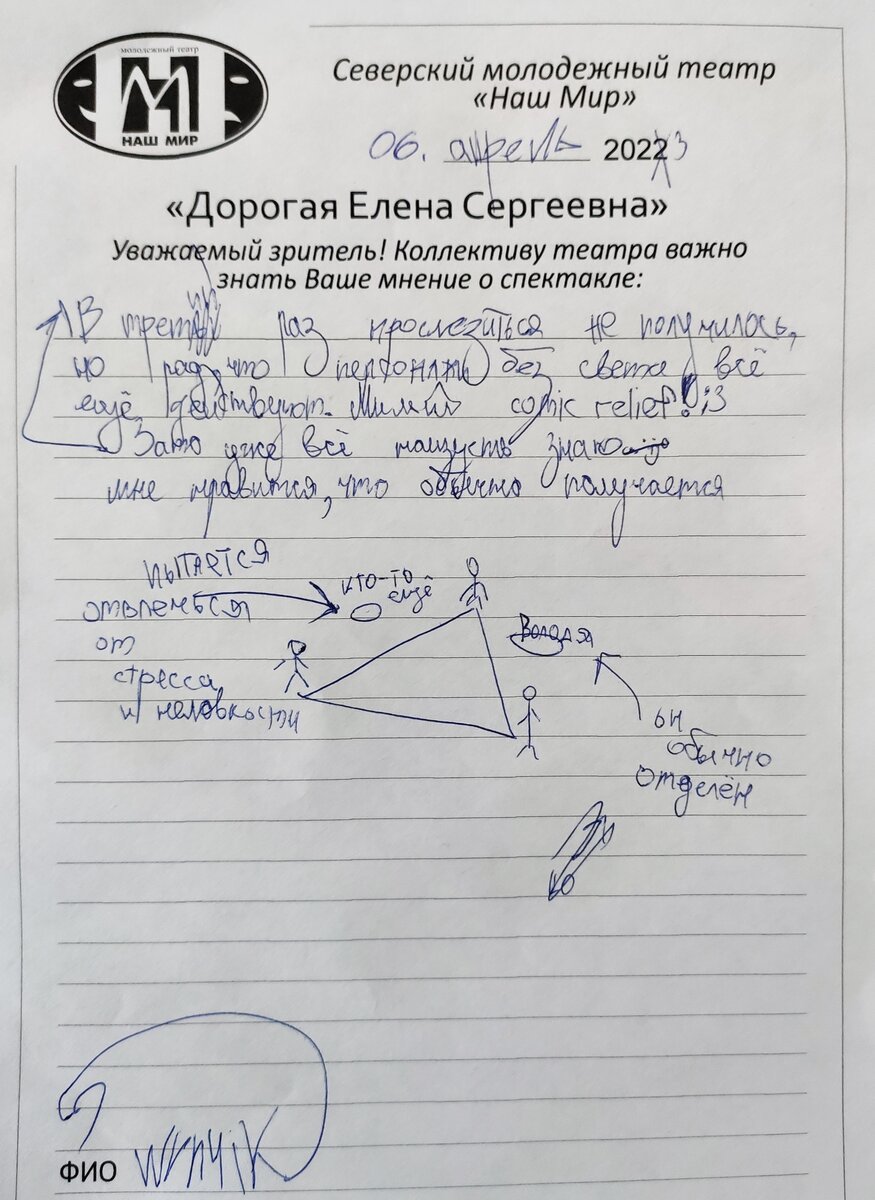 молодежный театр
НАШ МИР
Северский молодежный театр
«Наш Мир»
06. апрель 2023
«Дорогая Елена Сергеевна»
Уважаемый зритель! Коллективу театра важно
знать Ваше мнение о спектакле:
В третий раз прослезиться не получилось,
но рад, что персонажи без света всё
ещё действуют. Милый comic relief! :3
Зато уже всё наизусть знаю
мне нравится, что обычно получается
кто-то
ещё
пытается
отвлечься
от
стресса
и неловкости
Володя
он
обычно
отделён
ФИО